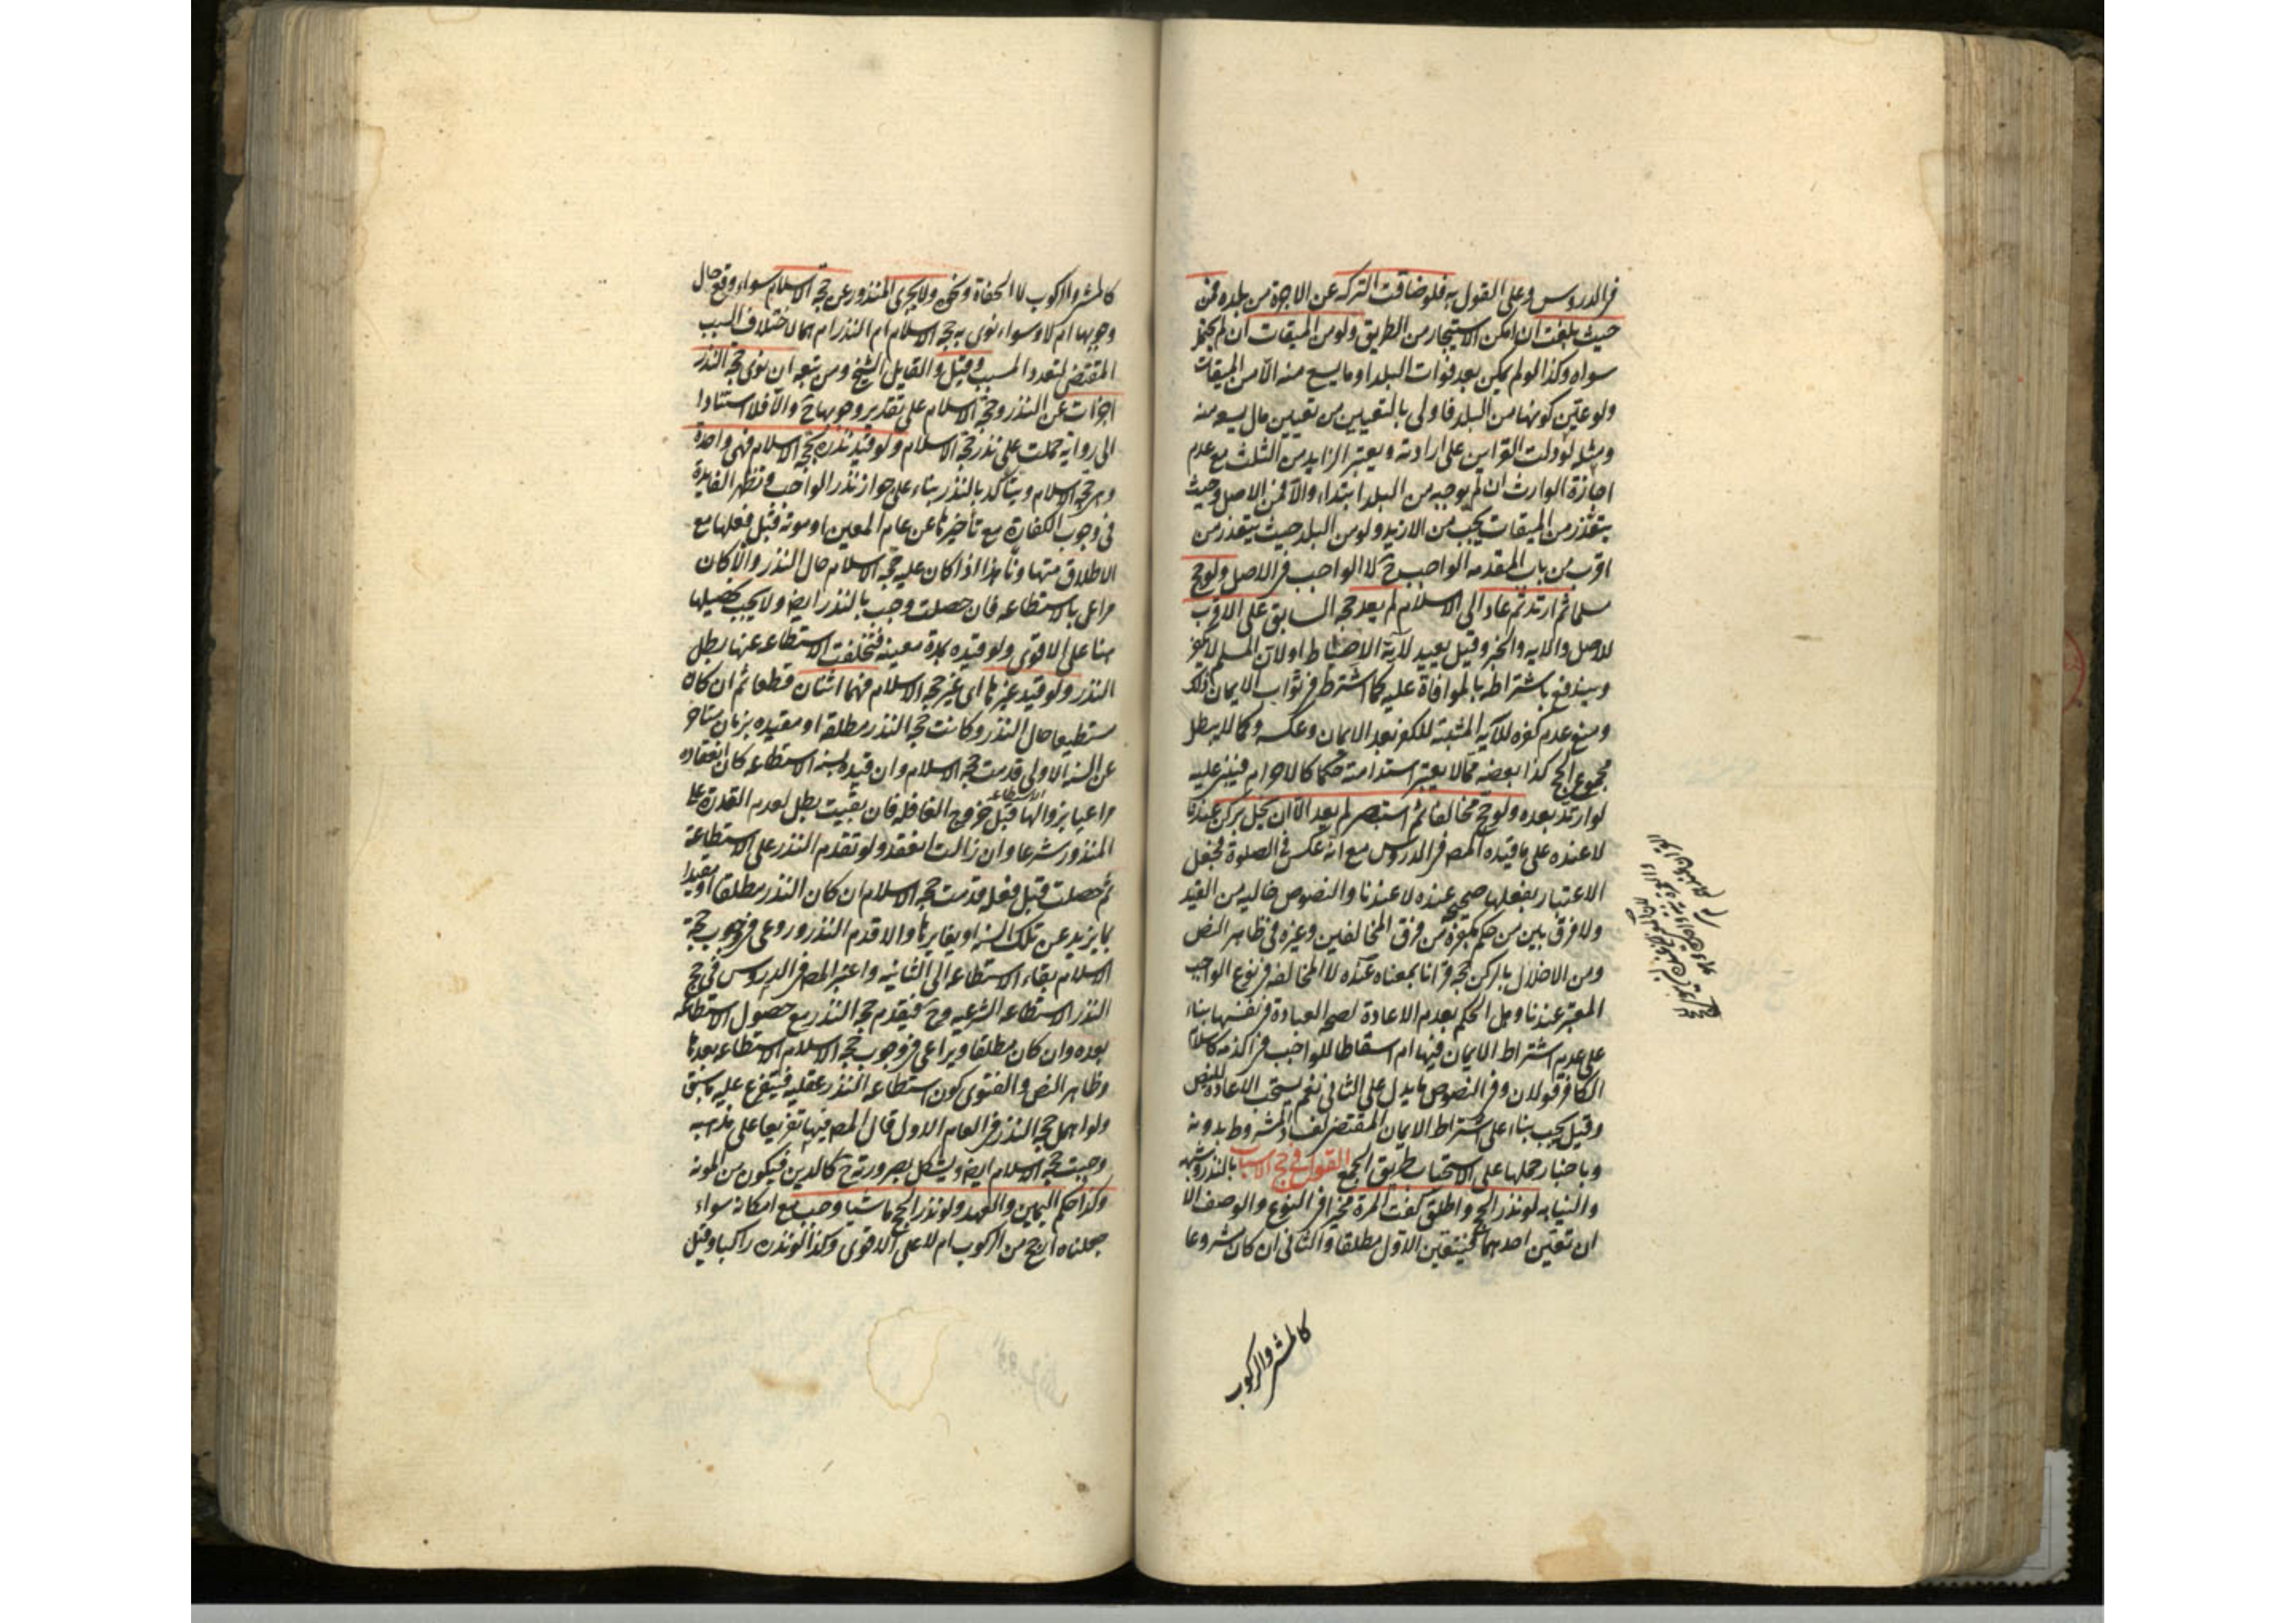 في الدروس وعلى القول به فلو ضاقت التركه عن الاجرة من بلده فمن
حيث بلغت ان امكن الاستيجار من الطريق ولو من الميقات ان لم يحتمل
سواه وكذا لو لم يمكن بعد فوات البلد او ما يسع منه الا من الميقات
ولو عين كونها من البلد فاولى بالتعيين من تعيين مال يسعه منه
ومثله لو دلت القراين على ارادته ويعتبر الزايد من الثلث مع عدم
اجازة الوارث ان لم نوجبه من البلد ابتداء والا فمن الاصل وحيث
يتعذر من الميقات يجب من الازيد ولو من البلد حيث يتعذر من
اقرب من باب المقدمه الواجب ح لا الواجب في الاصل ولو حج
مسلما ثم ارتد ثم عاد الى الاسلام لم يعد حجه السابق على الاقرب
للاصل والايه والخبر وقيل يعيد لآية الاحباط او لان المسلم لا يكفر
ويندفع باشتراطه بالموافاة عليه كما اشترط في ثواب الايمان ذلك
ومنع عدم كفره للآيه المثبته للكفر بعد الايمان وعكسه وكما لا يبطل
مجموع الحج كذا بعضه مما لا يعتبر استدامته حكما كالاحرام فيبنى عليه
لو ارتد بعده ولو حج مخالفا ثم استبصر لم يعد الا ان يخل بركن عندنا
لا عنده على ما قيده المص في الدروس مع انه عكس في الصلوة فجعل
الاعتبار بفعلها صحيح عنده لا عندنا والنصوص خاليه من القيد
ولا فرق بين من حكم بكفره من فرق المخالفين وغيره في ظاهر النص
ومن الاخلال بالركن حجه قرانا بمعناه عنده لا المخالفه في نوع الواجب
المعتبر عندنا وهل الحكم بعدم الاعادة لصحه العبادة في نفسها بناء
على عدم اشتراط الايمان فيها ام اسقاطا للواجب في الذمه كاسلام
الكافر قولان وفي النصوص ما يدل على الثاني نعم يستحب الاعادة للنص
وقيل يجب بناء على اشتراط الايمان المقتضي لفساد المشروط بدونه
وباخبار حملها على الاستحباب طريق الجمع القول في حج الاسباب بالنذر وشبهه
والنيابه لو نذر الحج واطلق كفت المرة مخيرا في النوع والوصف الا
ان تعين احدهما فيتعين الاول مطلقا والثاني ان كان مشروعا
كالمشي والركوب
كالمشي والركوب لا الحفاة ونحوه ولا يجزي المنذور عن حجه الاسلام سواء وقع حال
وجوبها ام لا وسواء نوى به حجه الاسلام ام النذر ام هما لاختلاف السبب
المقتضي لتعدد المسبب وقيل والقايل الشيخ ومن تبعه ان نوى حجه النذر
اجزات عن النذر وحجه الاسلام على تقدير وجوبها ح والا فلا استنادا
الى رواية حملت على نذر حجه الاسلام ولو قيد نذره بحجه الاسلام فهي واحدة
وهي حجه الاسلام ويتاكد بالنذر بناء على جواز نذر الواجب وتظهر الفايدة
في وجوب الكفارة مع تأخيرها عن عام المعين او موته قبل فعلها مع
الاطلاق متهاونا هذا اذا كان عليه حجه الاسلام حال النذر والا كان
مراعى بالاستطاعه فان حصلت وجب بالنذر ايضا ولا يجب تحصيلها
هنا على الاقوى ولو قيده بمدة معينه فتخلفت الاستطاعه عنها بطل
النذر ولو قيد غيرها اي غير حجه الاسلام فهما اثنتان قطعا ثم ان كان
مستطيعا حال النذر وكانت حجه النذر مطلقه او مقيده بزمان متاخر
عن السنه الاولى قدمت حجه الاسلام وان قيده بسنه الاستطاعه كان انعقاده
مراعيا بزوالها الاستطاعه قبل خروج القافله فان بقيت بطل لعدم القدرة على
المنذور شرعا وان زالت انعقد ولو تقدم النذر على الاستطاعة
ثم حصلت قبل فعله قدمت حجه الاسلام ان كان النذر مطلقا او مقيدا
بما يزيد عن تلك السنه او يغايرها والا قدم النذر وروعي في وجوب حجة
الاسلام بقاء الاستطاعه الى الثانيه واعتبر المص في الدروس في حج
النذر الاستطاعه الشرعيه وح فيقدم حجه النذر مع حصول الاستطاعه
بعده وان كان مطلقا ويراعى في وجوب حجه الاسلام الاستطاعه بعدها
وظاهر النص والفتوى كون استطاعه النذر عقليه فيتفرع عليه ما سبق
ولو اهمل حجه النذر في العام الاول قال المص فيها تفريعا على مذهبه
وجبت حجه الاسلام ايضا ويشكل بصيرورته ح كالدين فيكون من المونه
وكذا حكم اليمين والعهد ولو نذر الحج ماشيا وجب مع امكانه سواء
جعلناه ارجح من الركوب ام لا على الاقوى وكذا لو نذره راكبا وقيل